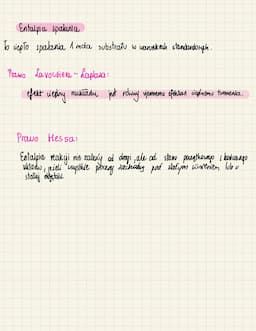 Entalpia spalania
To ciepło spalania 1 mola substratu w warunkach standardowych.
Prawo Lavoisiera - Laplace'a:
efekt cieplny rozkładu jest równy ujemnemu efektowi cieplnemu tworzenia.
Prawo Hessa:
Entalpia reakcji nie zależy od drogi, ale od stanu początkowego i końcowego
układu, jeżeli wszystkie procesy zachodzą pod stałym ciśnieniem lub w
stałej objętości